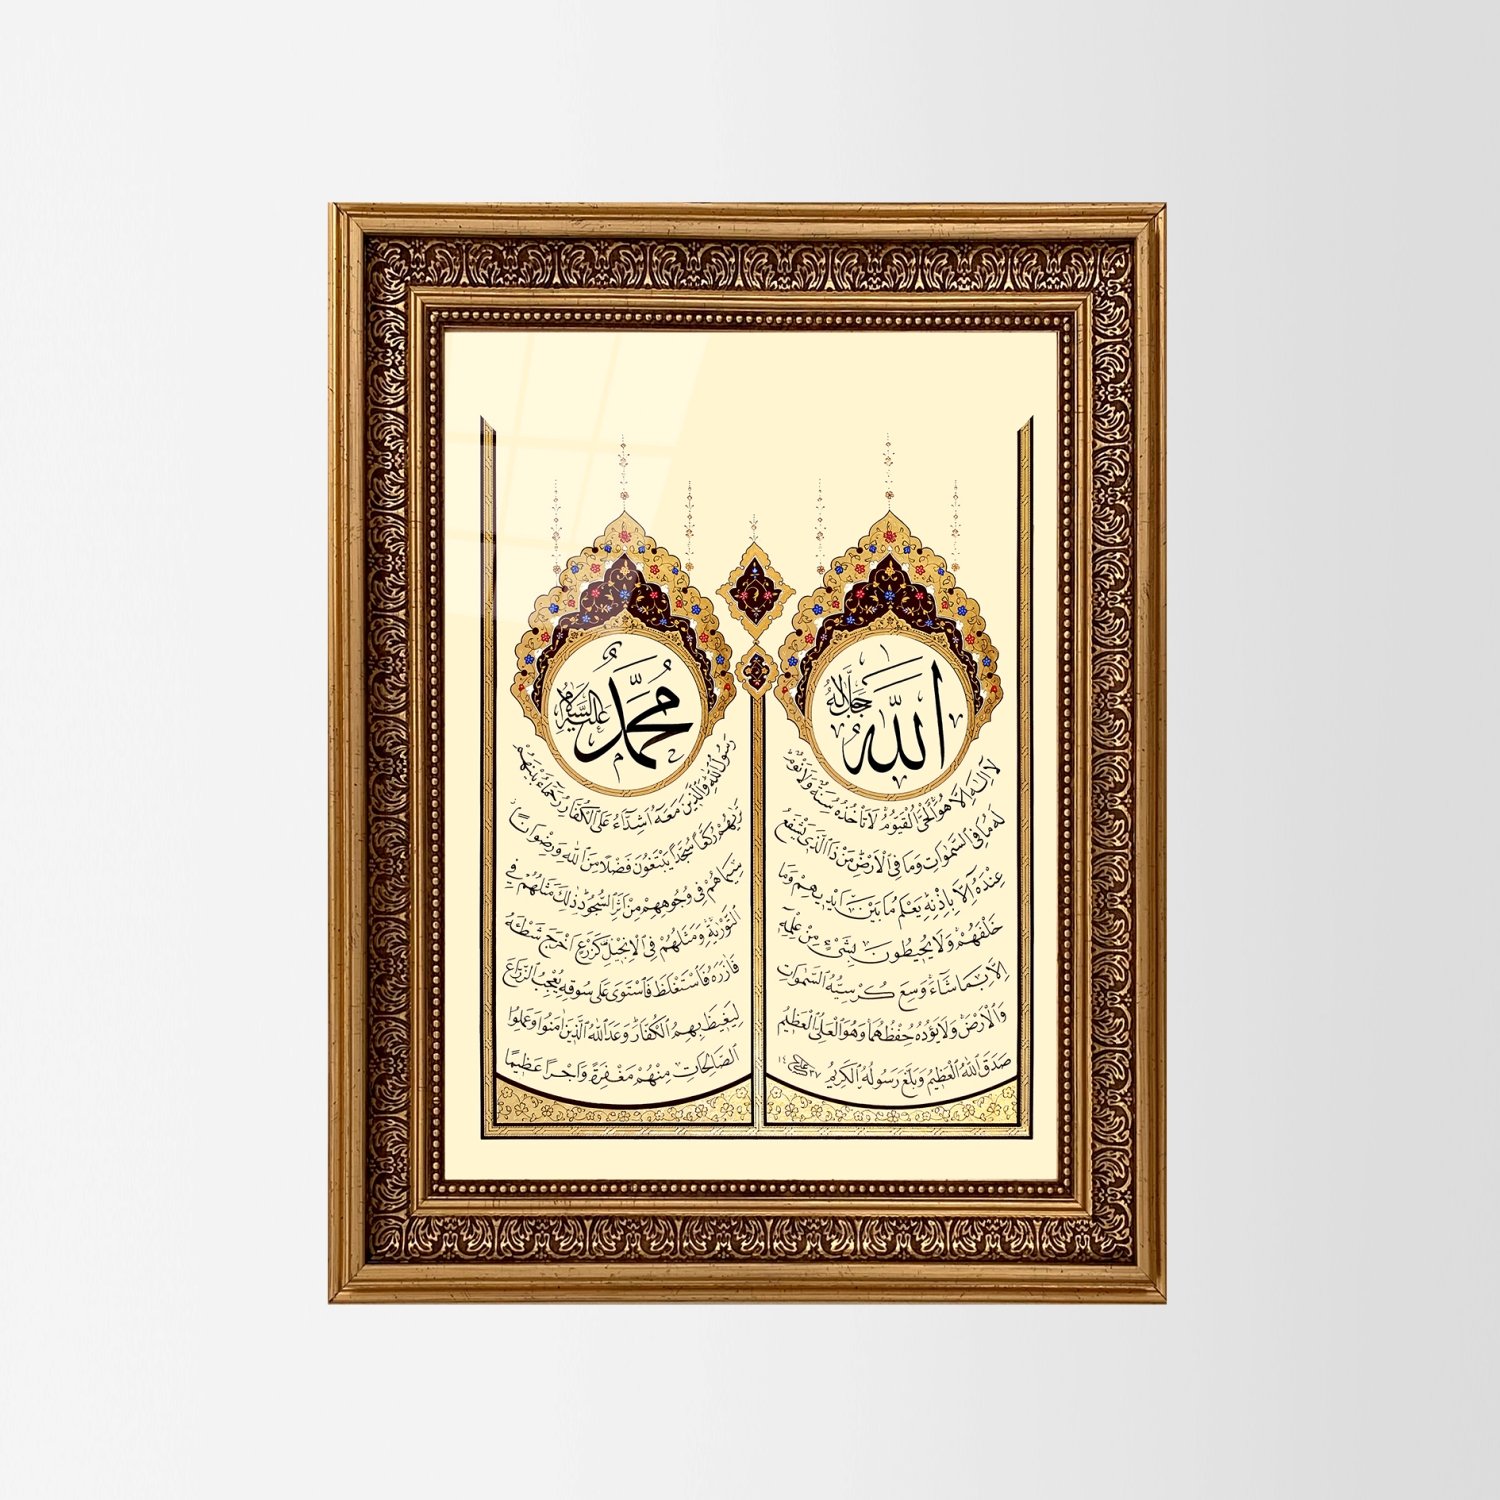 الله
جل جلاله
لَا اِلٰهَ اِلَّا هُوَ الْحَيُّ الْقَيُّومُ لَا تَأْخُذُهُ سِنَةٌ وَلَا نَوْمٌ
لَهُ مَا فِى السَّمٰوَاتِ وَمَا فِى الْاَرْضِ مَنْ ذَا الَّذِى يَشْفَعُ
عِنْدَهُ اِلَّا بِاِذْنِهِ يَعْلَمُ مَا بَيْنَ اَيْدِيهِمْ وَمَا
خَلْفَهُمْ وَلَا يُحِيطُونَ بِشَىْءٍ مِنْ عِلْمِهِ
اِلَّا بِمَا شَاءَ وَسِعَ كُرْسِيُّهُ السَّمٰوَاتِ
وَالْاَرْضَ وَلَا يَؤُدُهُ حِفْظُهُمَا وَهُوَ الْعَلِىُّ الْعَظِيمُ
صَدَقَ اللّٰهُ الْعَظِيمُ وَبَلَّغَ رَسُولُهُ الْكَرِيمُ
مُحَمَّد
عليه السلام
رَسُولُ اللّٰهِ وَالَّذِينَ مَعَهُ اَشِدَّاءُ عَلَى الْكُفَّارِ رُحَمَاءُ بَيْنَهُمْ
تَرٰيهُمْ رُكَّعًا سُجَّدًا يَبْتَغُونَ فَضْلًا مِنَ اللّٰهِ وَرِضْوَانًا
سِيمَاهُمْ فِى وُجُوهِهِمْ مِنْ اَثَرِ السُّجُودِ ذٰلِكَ مَثَلُهُمْ فِى
التَّوْرٰيةِ وَمَثَلُهُمْ فِى الْاِنْجِيلِ كَزَرْعٍ اَخْرَجَ شَطْـَٔهُ
فَاٰزَرَهُ فَاسْتَغْلَظَ فَاسْتَوٰى عَلٰى سُوقِهِ يُعْجِبُ الزُّرَّاعَ
لِيَغِيظَ بِهِمُ الْكُفَّارَ وَعَدَ اللّٰهُ الَّذِينَ اٰمَنُوا وَعَمِلُوا
الصَّالِحَاتِ مِنْهُمْ مَغْفِرَةً وَاَجْرًا عَظِيمًا